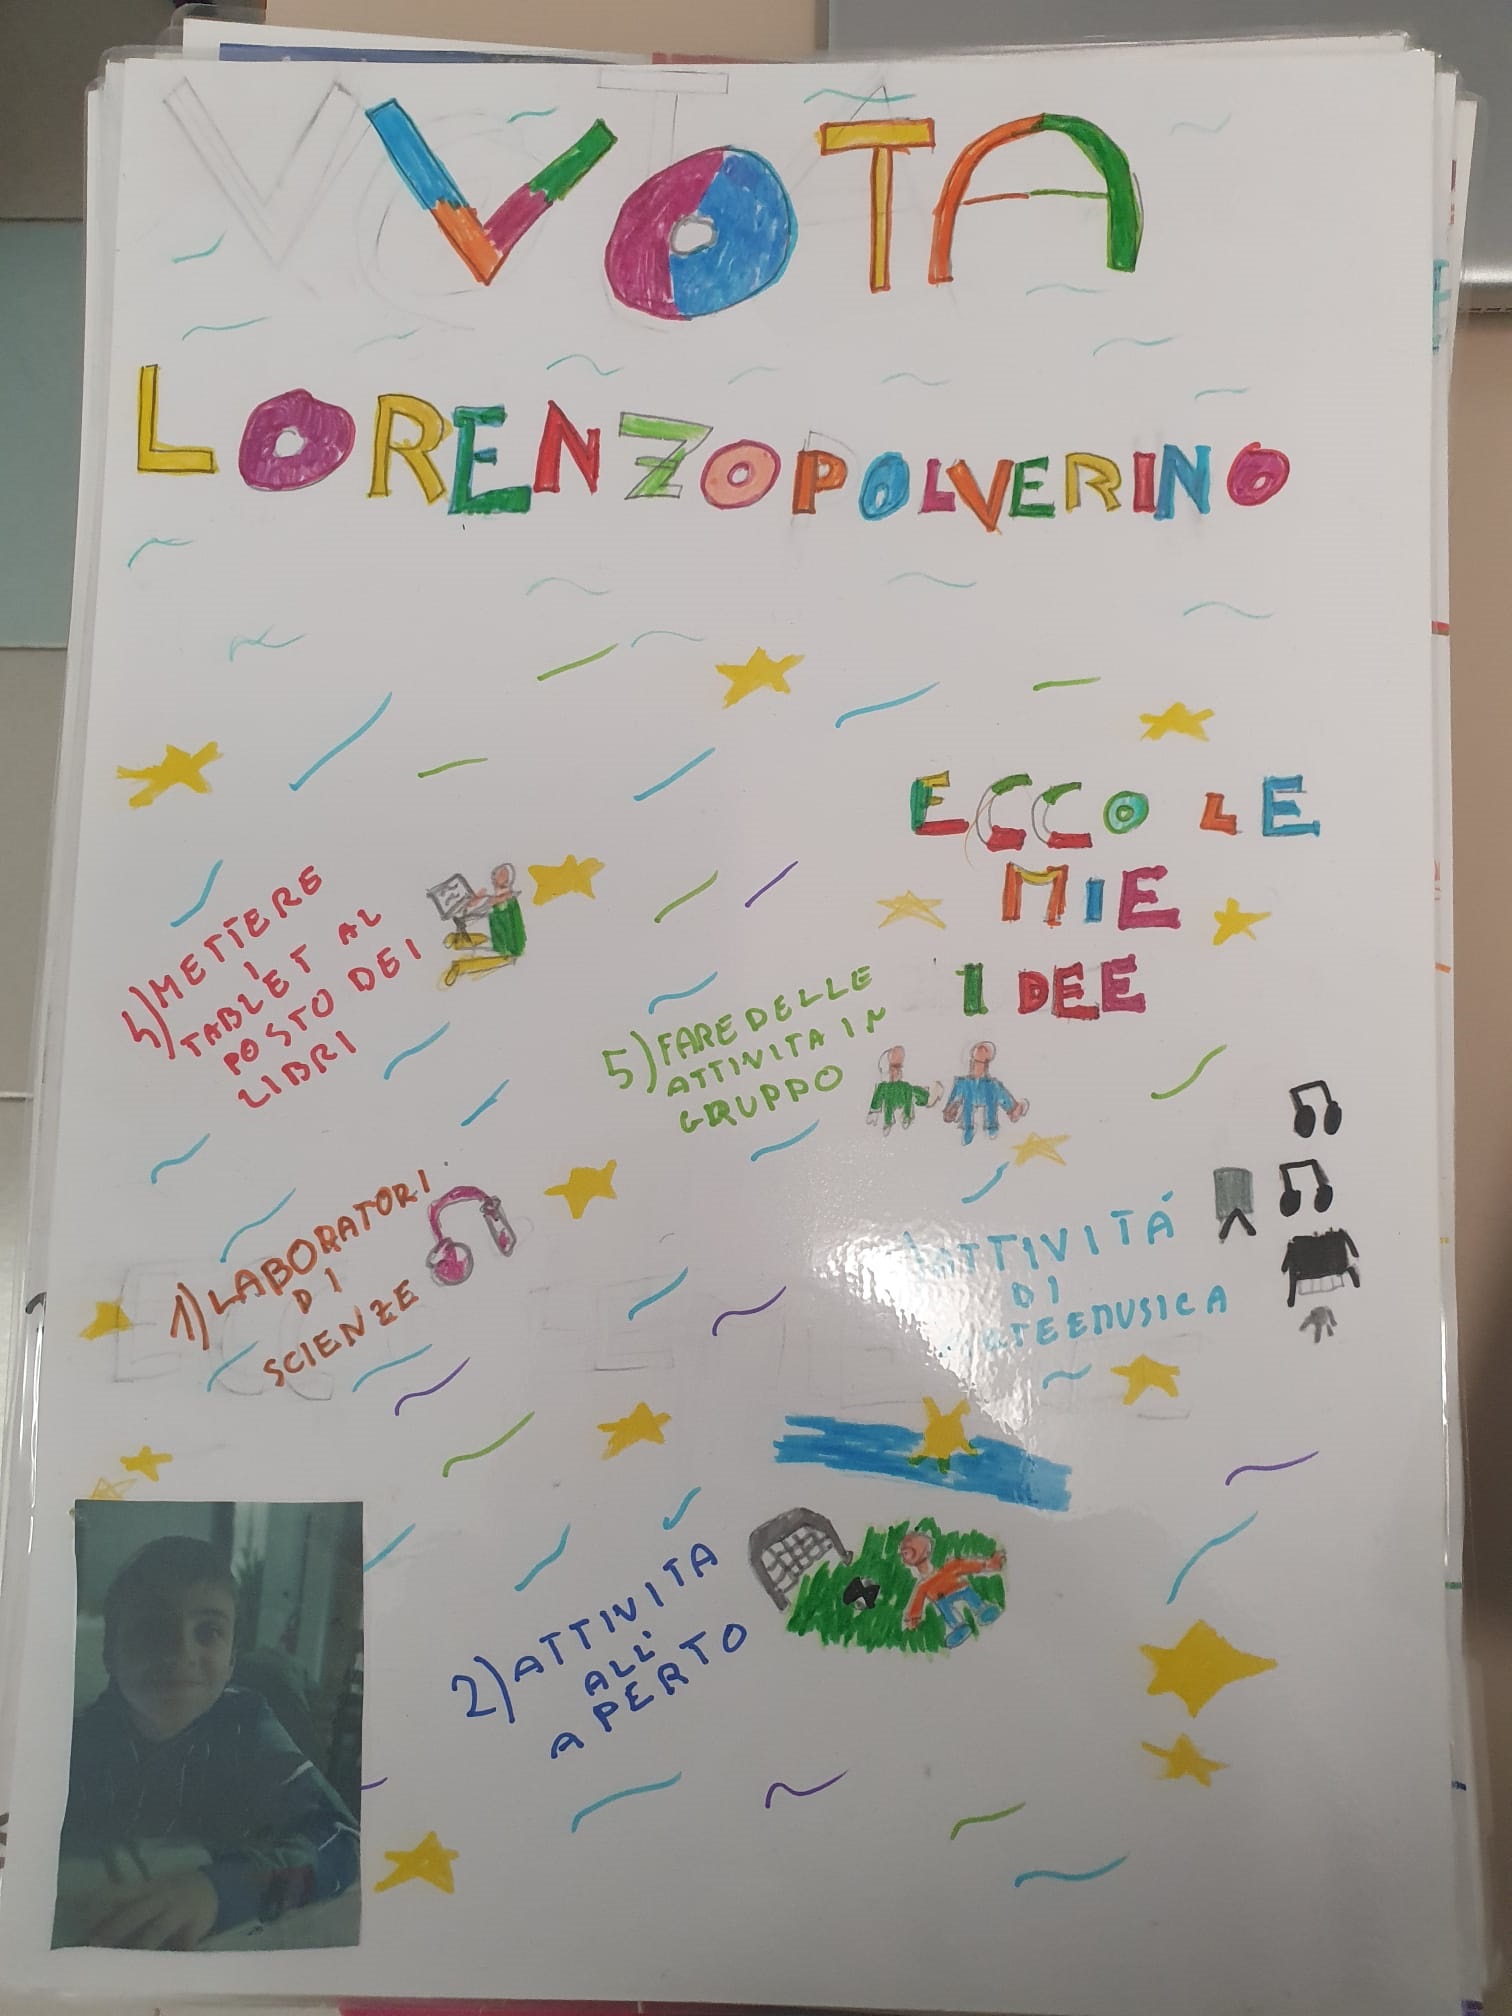 VOTA
LORENZO POLVERINO
ECCO LE
MIE
IDEE
4) METTERE
I
TABLET AL
POSTO DEI
LIBRI
5) FARE DELLE
ATTIVITA IN
GRUPPO
1) LABORATORI
DI
SCIENZE
ATTIVITÁ
DI
MUSICA
2) ATTIVITA
ALL'
APERTO